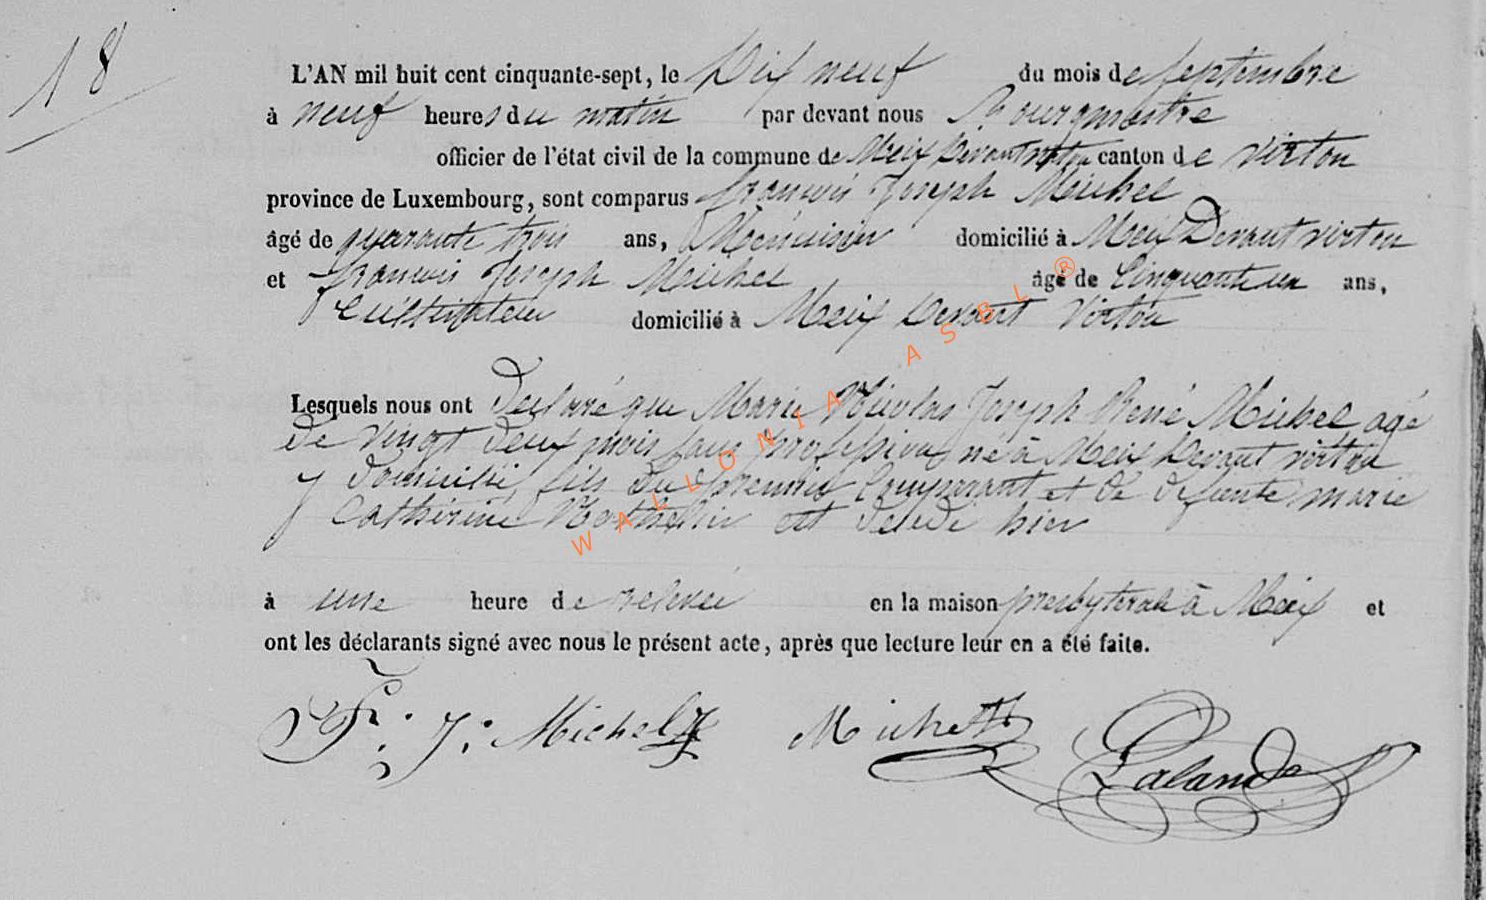 18
L'AN mil huit cent cinquante-sept, le Dix neuf du mois de septembre
à neuf heures du matin par devant nous Bourgmestre
officier de l'état civil de la commune de Meix Devant virton canton de virton
province de Luxembourg, sont comparus françois Joseph Michel
âgé de quarante trois ans, Menuisier domicilié à Meix Devant virton
et françois Joseph Michel âgé de Cinquante un ans,
Cultivateur domicilié à Meix Devant Virton
Lesquels nous ont Declaré que Marie Nicolas Joseph René Michel agé
de vingt deux mois sans profession né à Meix Devant virton
y domicilié fils du premier Comparant et de defunte marie
Catherine est decedé hier
à une heure de relevée en la maison presbyterale à Meix et
ont les déclarants signé avec nous le présent acte, après que lecture leur en a été faite.
Fr. J. Michel Michel Lalande
WALLONIA ASBL ®